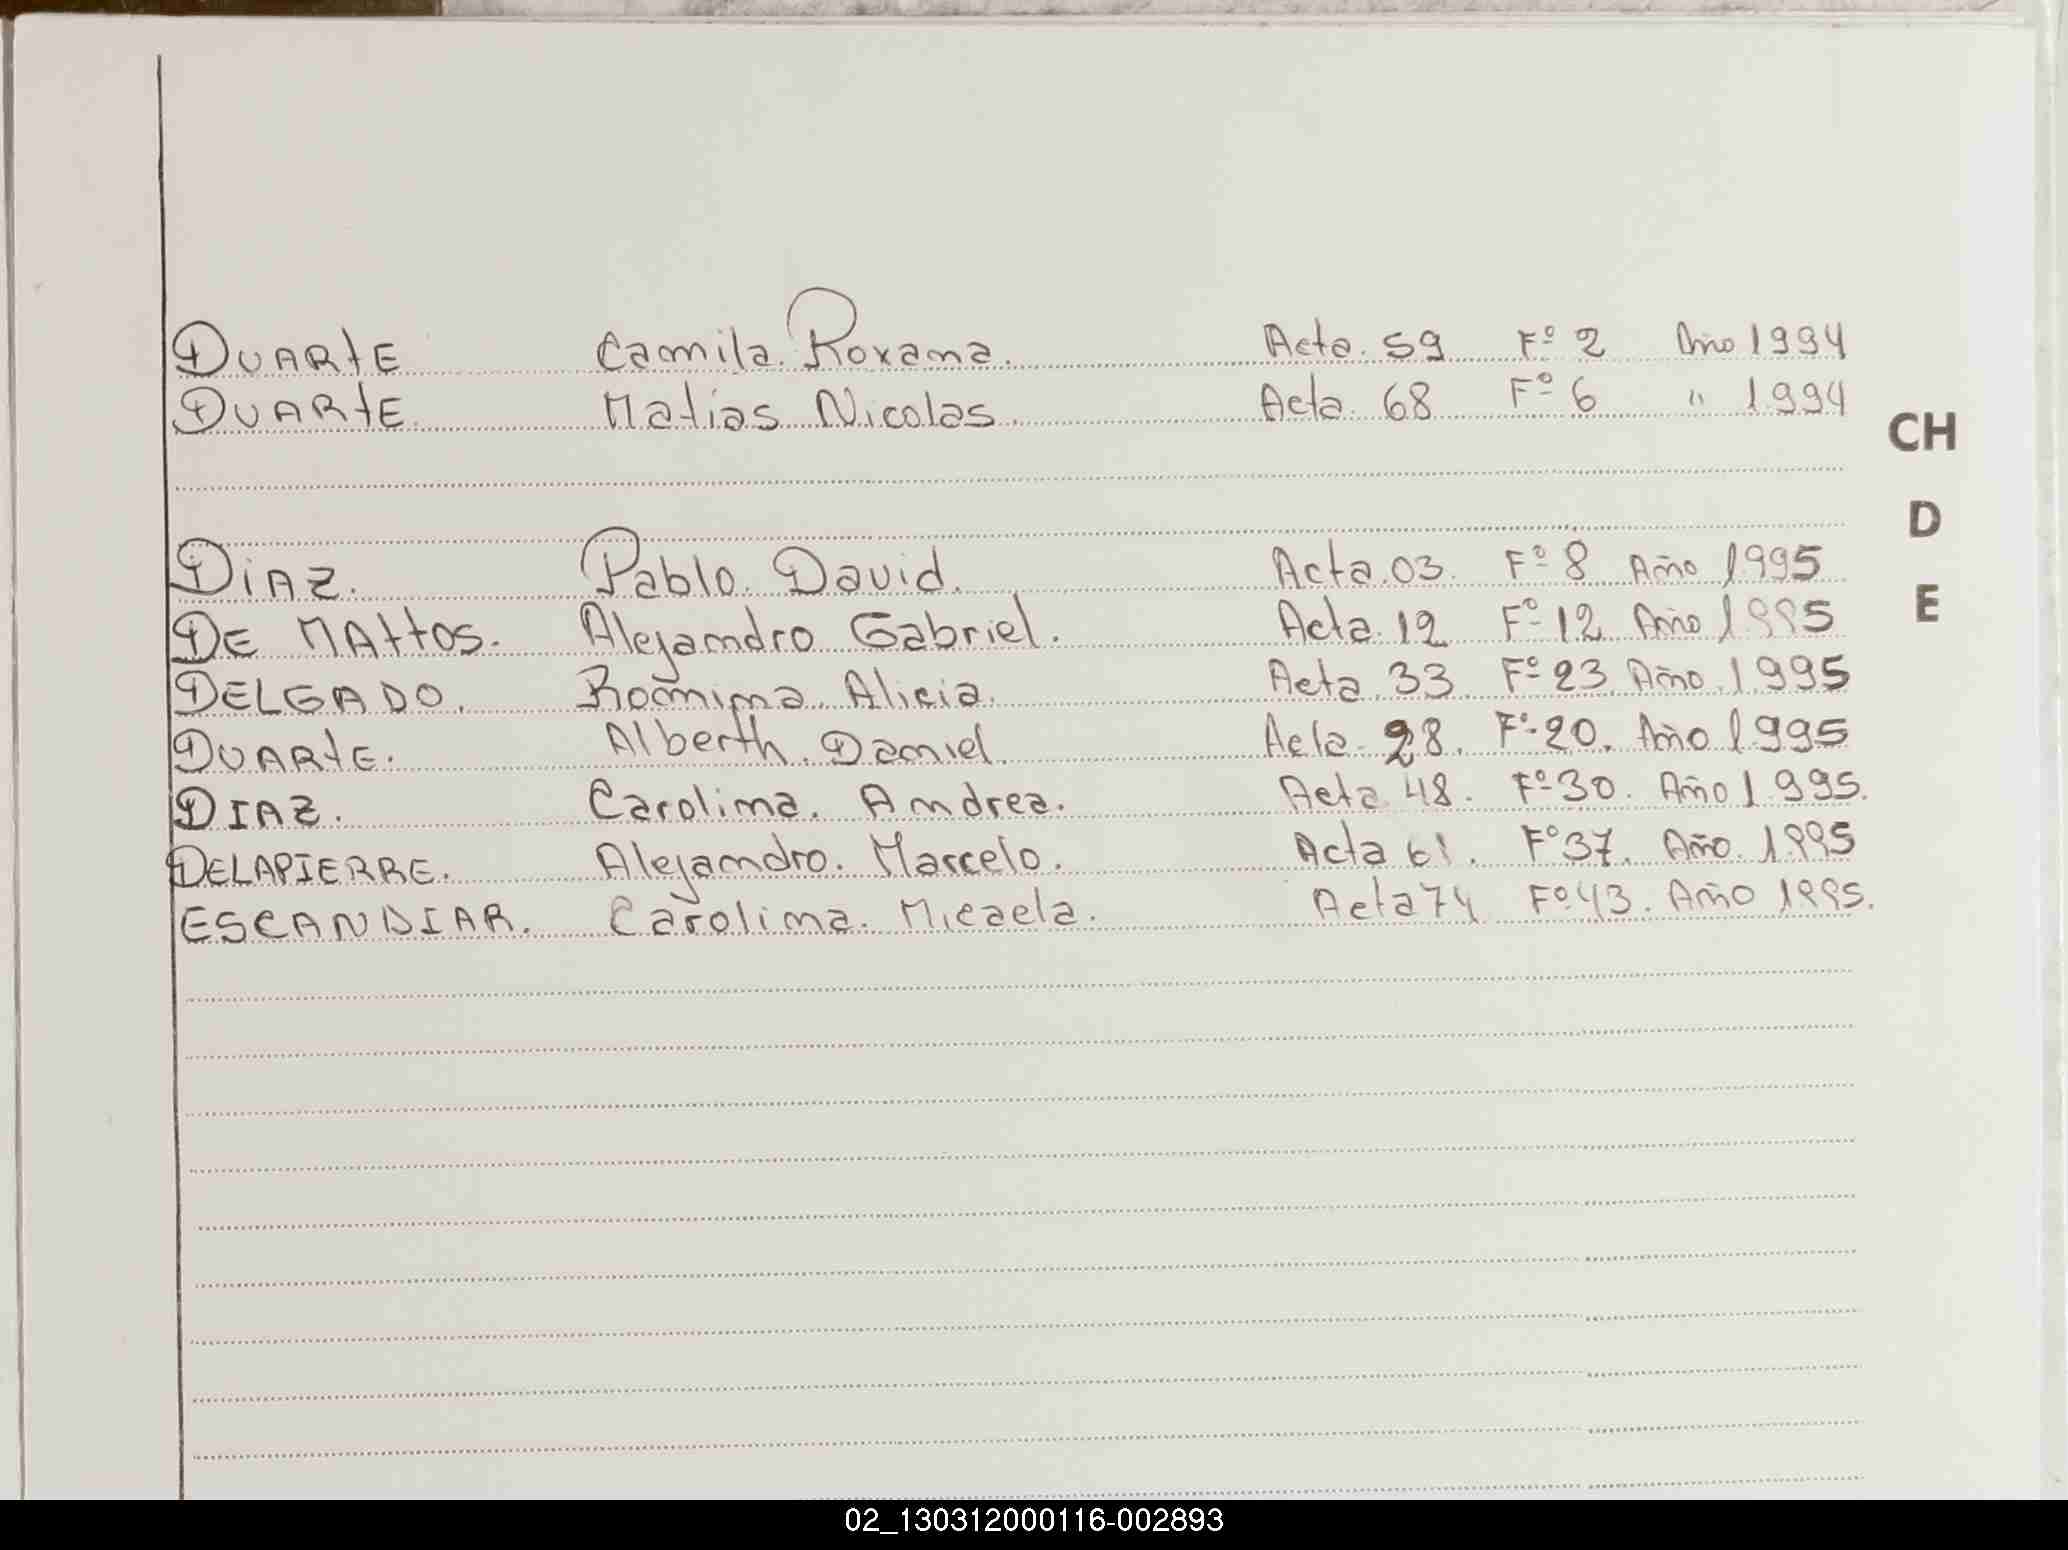 DUARTE Camila Roxana. Acta 59 Fº 2 Año 1994
DUARTE Matias Nicolas. Acta 68 Fº 6 " 1994
CH
D
DIAZ. Pablo David. Acta 03. Fº 8 Año 1995
DE MATTOS. Alejandro Gabriel. Acta 12 Fº 12 Año 1995
E
DELGADO. Romina Alicia. Acta 33 Fº 23 Año 1995
DUARTE. Alberth Daniel. Acta 28. Fº 20. Año 1995
DIAZ. Carolina. Andrea. Acta 48. Fº 30. Año 1995.
DELAPIERRE. Alejandro. Marcelo. Acta 61. Fº 37. Año. 1995
ESCANDIAR. Carolina. Micaela. Acta 74 Fº 43. Año 1995.
02_130312000116-002893